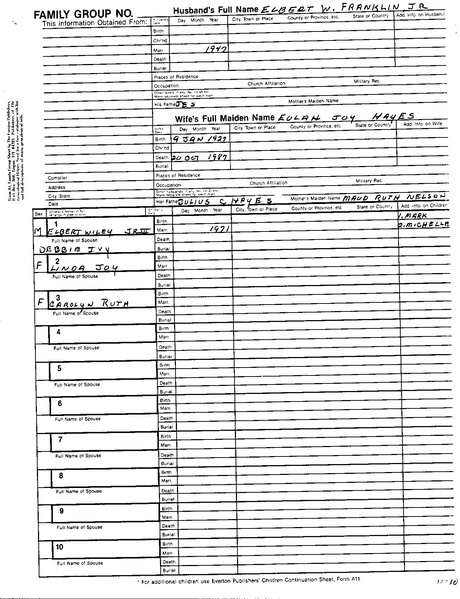 FAMILY GROUP NO.
Husband's Full Name ELBERT W. FRANKLIN JR
This Information Obtained From:
Day Month Year City, Town or Place County or Province, etc. State or Country Add. Info. on Husband
Birth
Chr'nd
Marr. 1947
Death
Burial
Places of Residence
Occupation Church Affiliation Military Rec.
His Father JES Mother's Maiden Name
Wife's Full Maiden Name EULAH JOY HAYES
Day Month Year City, Town or Place County or Province, etc. State or Country Add. Info. on Wife
Birth 9 JAN 1927
Chr'nd
Death 20 OCT 1987
Burial
Compiler
Places of Residence
Address
Occupation Church Affiliation Military Rec.
City, State
Date
Her Father JULIUS C HAYES Mother's Maiden Name MAUD RUTH NELSON
Sex
Day Month Year City, Town or Place County or Province, etc. State or Country Add. Info on Children
1
Birth
1. MARK
M ELBERT WILEY JR III
Marr. 1971
2. MICHELLE
Full Name of Spouse
Death
DEBBIE IVY
Burial
2
Birth
F LINDA JOY
Marr.
Full Name of Spouse
Death
Burial
3
Birth
F CAROLYN RUTH
Marr.
Full Name of Spouse
Death
Burial
4
Birth
Marr.
Full Name of Spouse
Death
Burial
5
Birth
Marr.
Full Name of Spouse
Death
Burial
6
Birth
Marr.
Full Name of Spouse
Death
Burial
7
Birth
Marr.
Full Name of Spouse
Death
Burial
8
Birth
Marr.
Full Name of Spouse
Death
Burial
9
Birth
Marr.
Full Name of Spouse
Death
Burial
10
Birth
Marr.
Full Name of Spouse
Death
Burial
* For additional children use Everton Publishers' Children Continuation Sheet, Form A11